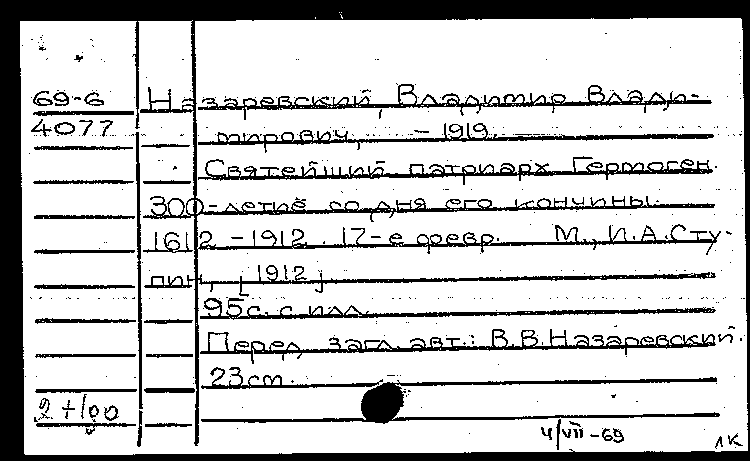 69-6 Назаревский, Владимир Влади-
4077 мирович, -1919.
Святейший патриарх Гермоген.
300-летие со дня его кончины.
1612-1912. 17-е февр. М., И.А.Сту-
пин, [1912]
95с. с илл.
Перед загл. авт.: В.В.Назаревский.
23см.
4/VII-69